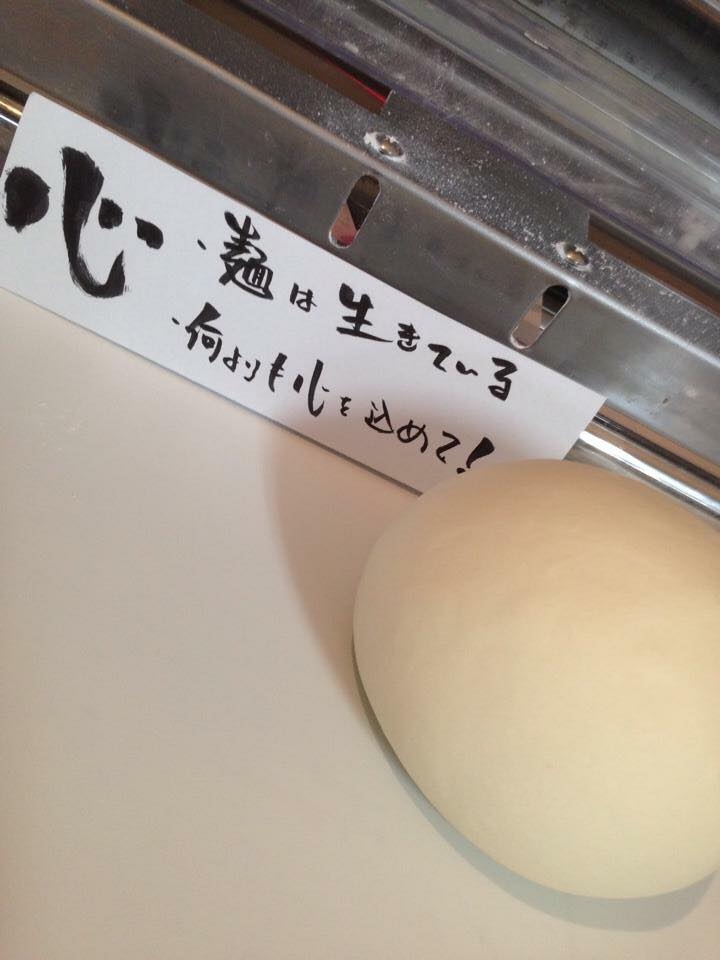 心
・麺は生きている
・何よりも心を込めて!